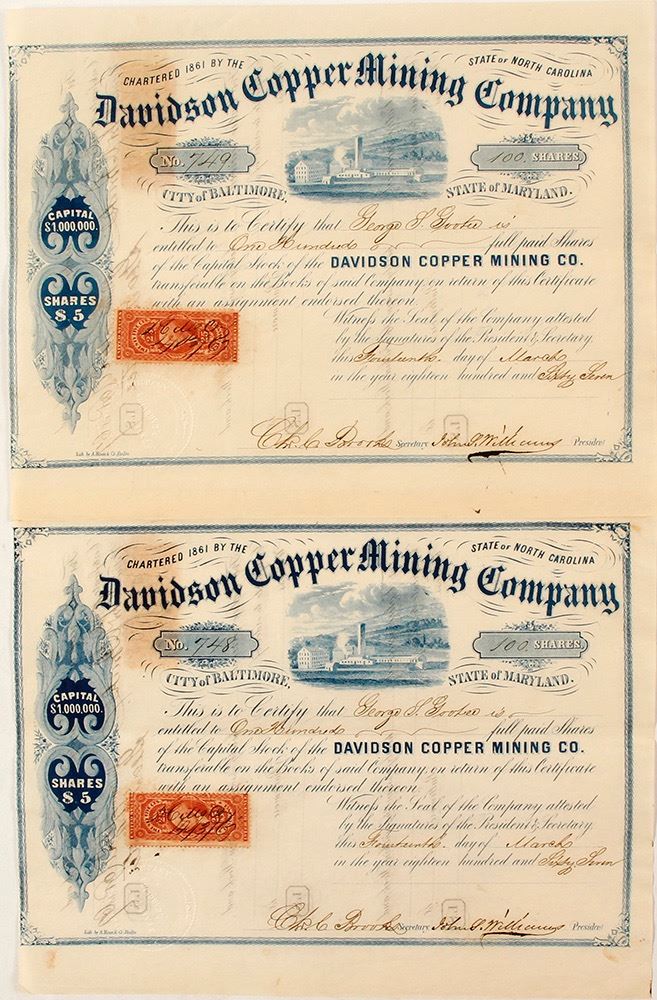 CHARTERED 1861 BY THE STATE OF NORTH CAROLINA
Davidson Copper Mining Company
No. 749. 100 SHARES
CITY of BALTIMORE, STATE of MARYLAND.
CAPITAL
$1,000,000.
SHARES
$5
This is to Certify that George S. is
entitled to One Hundred full paid Shares
of the Capital Stock of the DAVIDSON COPPER MINING CO.
transferable on the Books of said Company on return of this Certificate
with an assignment endorsed thereon.
Witness the Seal of the Company attested
by the Signatures of the President & Secretary.
this Fourteenth day of March
in the year eighteen hundred and Sixty Seven
Ch. C Brooks Secretary John S. Williams President
Lith. by A. Hoen & Co. Balto.
CHARTERED 1861 BY THE STATE OF NORTH CAROLINA
Davidson Copper Mining Company
No. 748. 100 SHARES
CITY of BALTIMORE, STATE of MARYLAND.
CAPITAL
$1,000,000.
SHARES
$5
This is to Certify that George S. is
entitled to One Hundred full paid Shares
of the Capital Stock of the DAVIDSON COPPER MINING CO.
transferable on the Books of said Company on return of this Certificate
with an assignment endorsed thereon.
Witness the Seal of the Company attested
by the Signatures of the President & Secretary.
this Fourteenth day of March
in the year eighteen hundred and Sixty Seven
Ch. C Brooks Secretary John S. Williams President
Lith. by A. Hoen & Co. Balto.